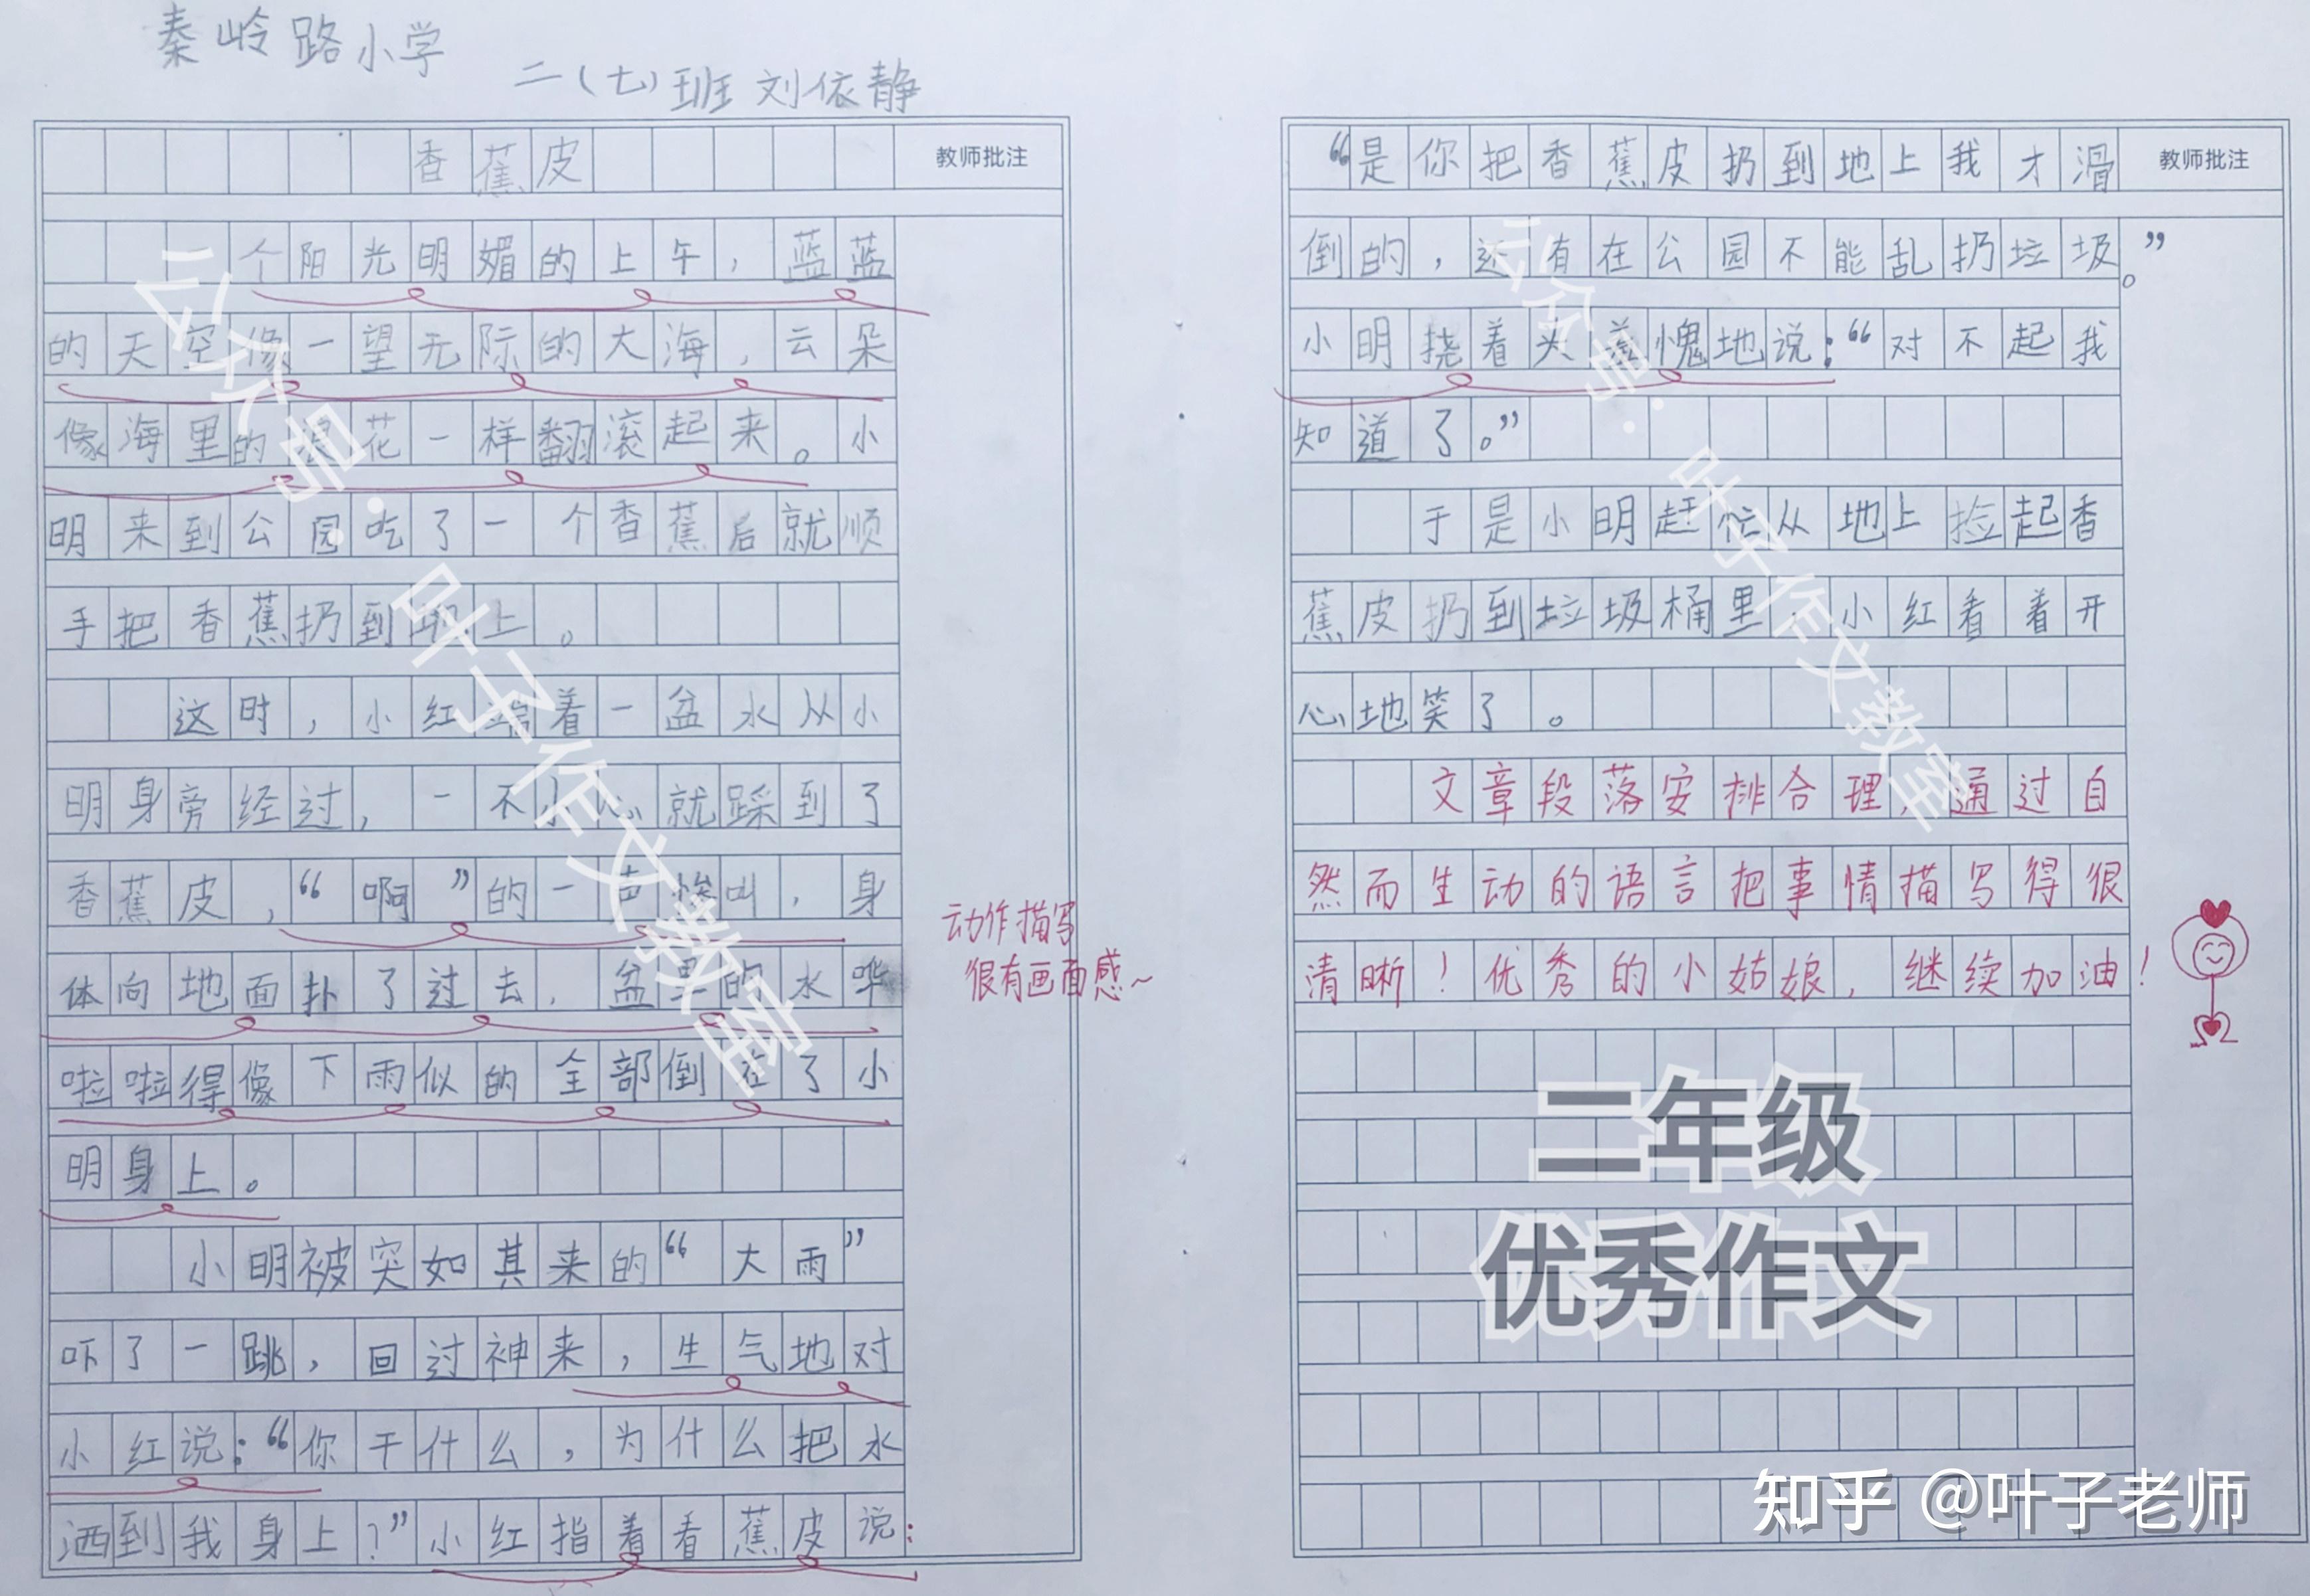 秦岭路小学
二(七)班 刘依静
香蕉皮
教师批注
一个阳光明媚的上午，蓝蓝
的天空像一望无际的大海，云朵
像海里的浪花一样翻滚起来。小
明来到公园吃了一个香蕉后就顺
手把香蕉扔到地上。
这时，小红端着一盆水从小
明身旁经过，一不小心就踩到了
香蕉皮，“啊”的一声惨叫，身
体向地面扑了过去，盆里的水哗
啦啦得像下雨似的全部倒在了小
明身上。
小明被突如其来的“大雨”
吓了一跳，回过神来，生气地对
小红说：“你干什么，为什么把水
洒到我身上？”小红指着香蕉皮说：
动作描写
很有画面感~
“是你把香蕉皮扔到地上我才滑
教师批注
倒的，还有在公园不能乱扔垃圾。”
小明挠着头羞愧地说：“对不起我
知道了。”
于是小明赶忙从地上捡起香
蕉皮扔到垃圾桶里，小红看着开
心地笑了。
文章段落安排合理，通过自
然而生动的语言把事情描写得很
清晰！优秀的小姑娘，继续加油！
公众号·叶子作文教室
公众号·叶子作文教室
二年级
优秀作文
知乎 @叶子老师